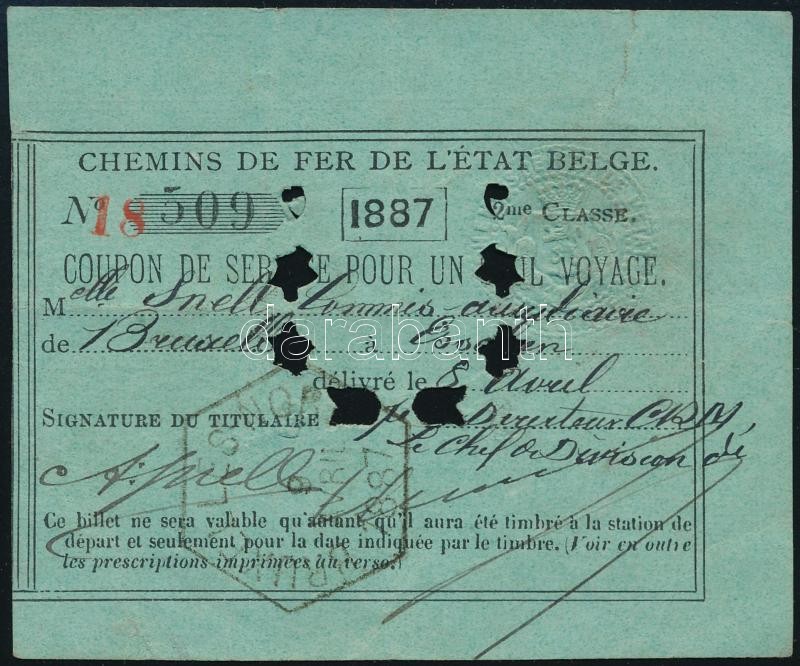 CHEMINS DE FER DE L'ÉTAT BELGE.
No 18 509 1887 2me CLASSE.
COUPON DE SER E POUR UN IL VOYAGE.
Melle Snell Commis auxiliaire
de Bruxelle à
délivré le 8 Avril
SIGNATURE DU TITULAIRE Directeur
Le Chef de Division
A. Snell
Ce billet ne sera valable qu'autant qu'il aura été timbré à la station de
départ et seulement pour la date indiquée par le timbre. (Voir en outre
les prescriptions imprimées au verso.)
darabanth